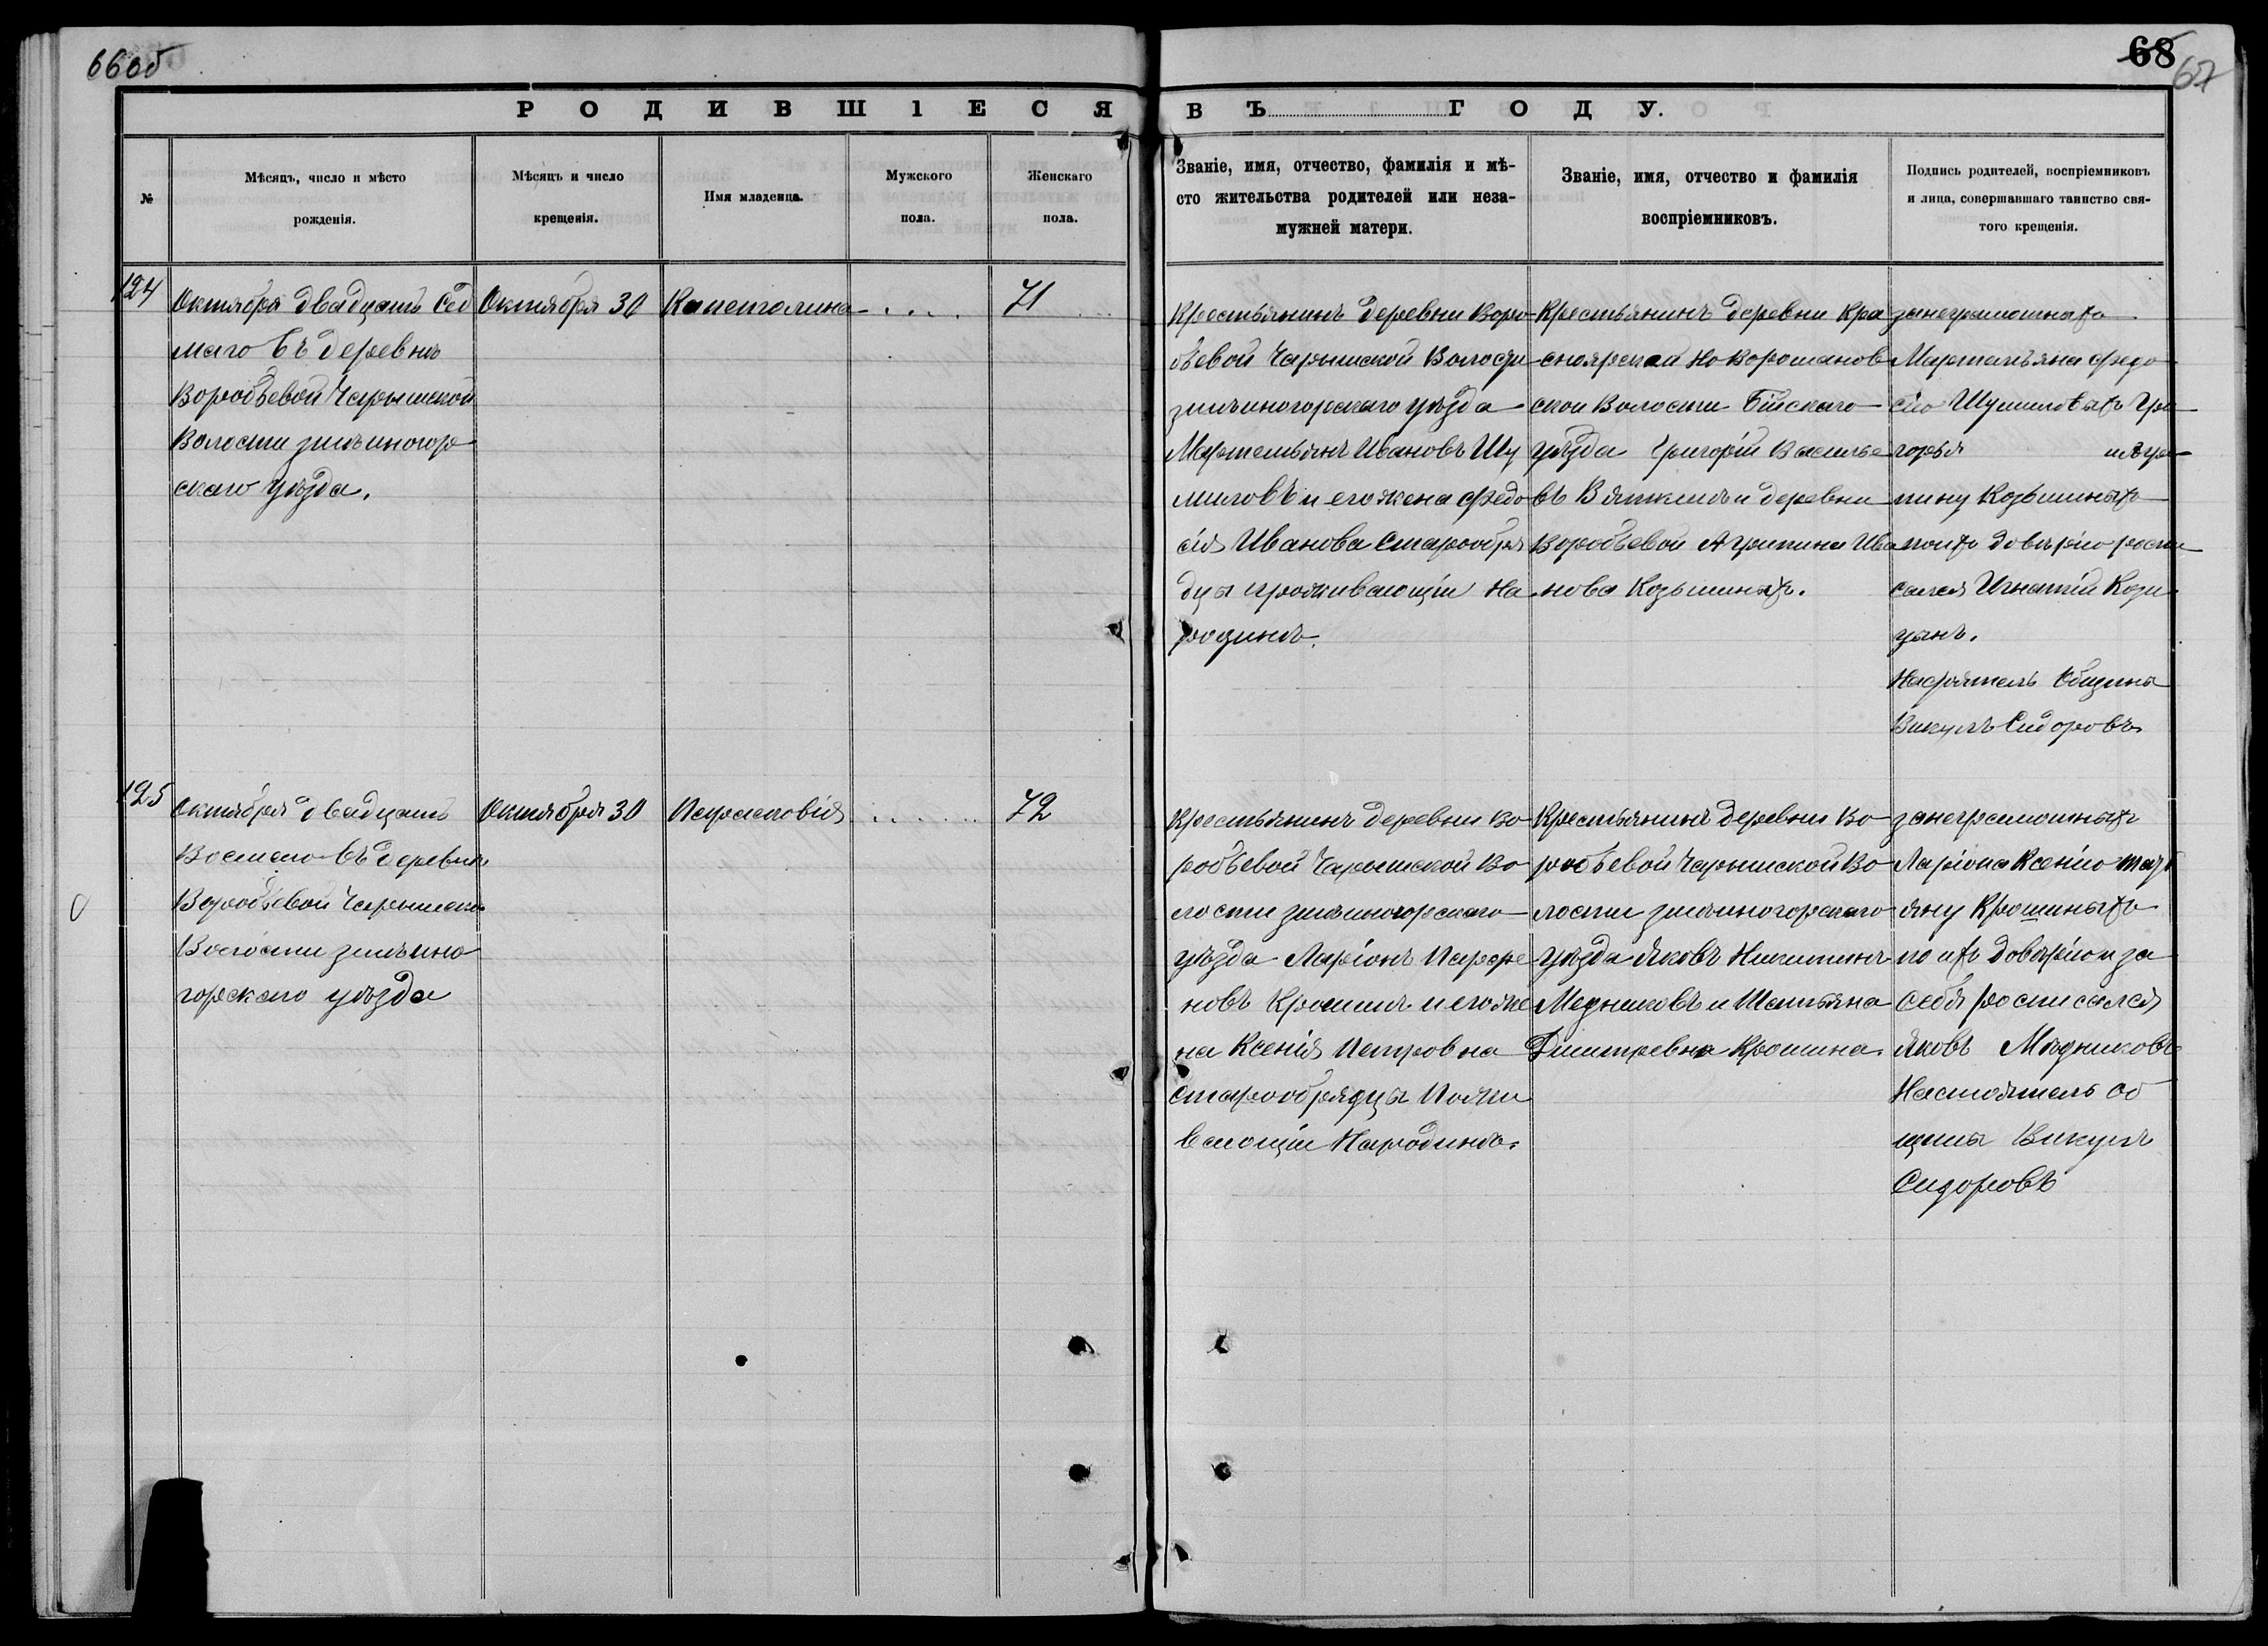 66об
68
67
РОДИВШІЕСЯ ВЪ ГОДУ.
№
Мѣсяцъ, число и мѣсто
рожденія.
Мѣсяцъ и число
крещенія.
Имя младенца.
Мужского
пола.
Женскаго
пола.
Званіе, имя, отчество, фамилія и мѣ-
сто жительства родителей или неза-
мужней матери.
Званіе, имя, отчество и фамилія
воспріемниковъ.
Подпись родителей, воспріемниковъ
и лица, совершавшаго таинство свя-
того крещенія.
124
Октября двадцать сед
маго въ деревнѣ
Воробьевой Чарышской
Волости змѣиногор
скаго уѣзда.
Октября 30
Капетолина
71
Крестьянинъ деревни Воро
бьевой Чарышской Волости
змѣиногорскаго уѣзда
Мартемьянъ Ивановъ Шу
миловъ и его жена Федо
сія Иванова Старообря
дцы проживающіи на
родинѣ.
Крестьянинъ деревни Кра
сноярской
ской Волости Бійскаго
уѣзда Григорій Василье
въ Вяткинъ и деревни
Воробьевой Агрипина Ива
нова Козьминыхъ.
занеграмотныхъ
Мартемьяна Федо
сію Шумиловыхъ Гри
горья и Агри
пину Козьминыхъ
поихъ довѣрію роспи
сался Игнатій
Настоятель Общины
Викулъ Сидоровъ
125
Октября двадцать
Восмого въ деревнѣ
Воробьевой Чарышской
Волости змѣино
горскаго уѣзда
Октября 30
Парасковія
72
Крестьянинъ деревни Во
робьевой Чарышской Во
лости змѣиногорскаго
уѣзда Ларіонъ Парфе
новъ Крошинъ и его же
на Ксенія Петровна
старообрядцы Пожи
вающіи Народинѣ.
Крестьянинъ деревни Во
робьевой Чарышской Во
лости змѣиногорскаго
уѣзда Яковъ Никитинъ
Медниковъ и Татьяна
Дмитревна Крошина.
занеграмотныхъ
Ларіона Ксенію тать
яну Крошиныхъ
по ихъ довѣрію и за
себя росписался
Яковъ Мѣдниковъ
Настоятель об
щины Викулъ
Сидоровъ